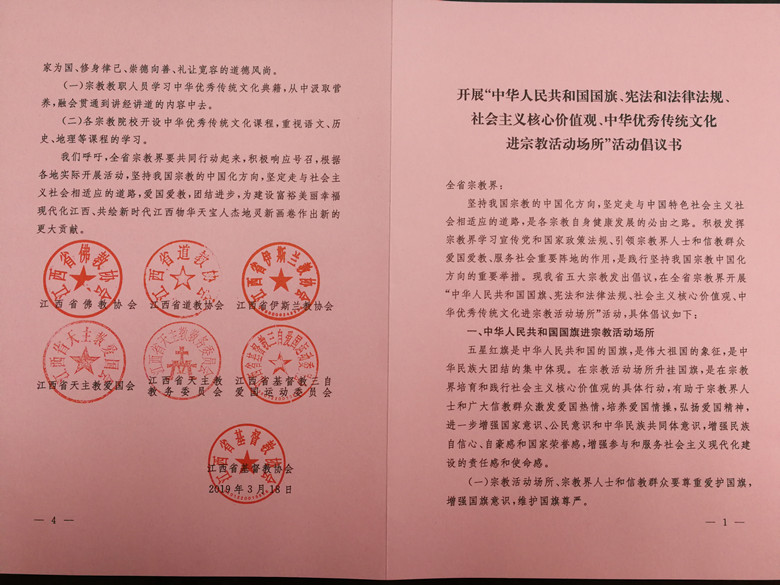 家为国、修身律己、崇德向善、礼让宽容的道德风尚。
(一)宗教教职人员学习中华优秀传统文化典籍,从中汲取营
养,融会贯通到讲经讲道的内容中去。
(二)各宗教院校开设中华优秀传统文化课程,重视语文、历
史、地理等课程的学习。
我们呼吁,全省宗教界要共同行动起来,积极响应号召,根据
各地实际开展活动,坚持我国宗教的中国化方向,坚定走与社会主
义社会相适应的道路,爱国爱教,团结进步,为建设富裕美丽幸福
现代化江西、共绘新时代江西物华天宝人杰地灵新画卷作出新的
更大贡献。
江西省佛教协会
江西省道教协会
江西省伊斯兰教协会
江西省佛教协会
江西省道教协会
江西省伊斯兰教协会
江西省天主教爱国会
江西省天主教教务委员会
江西省基督教三自爱国运动委员会
江西省天主教爱国会
江西省天主教
教务委员会
江西省基督教三自
爱国运动委员会
江西省基督教协会
江西省基督教协会
2019年3月18日
— 4 —
开展“中华人民共和国国旗、宪法和法律法规、
社会主义核心价值观、中华优秀传统文化
进宗教活动场所”活动倡议书
全省宗教界:
坚持我国宗教的中国化方向,坚定走与中国特色社会主义社
会相适应的道路,是各宗教自身健康发展的必由之路。积极发挥
宗教界学习宣传党和国家政策法规、引领宗教界人士和信教群众
爱国爱教、服务社会重要阵地的作用,是践行坚持我国宗教中国化
方向的重要举措。现我省五大宗教发出倡议,在全省宗教界开展
“中华人民共和国国旗、宪法和法律法规、社会主义核心价值观、中
华优秀传统文化进宗教活动场所”活动,具体倡议如下:
一、中华人民共和国国旗进宗教活动场所
五星红旗是中华人民共和国的国旗,是伟大祖国的象征,是中
华民族大团结的集中体现。在宗教活动场所升挂国旗,是在宗教
界培育和践行社会主义核心价值观的具体行动,有助于宗教界人
士和广大信教群众激发爱国热情,培养爱国情操,弘扬爱国精神,
进一步增强国家意识、公民意识和中华民族共同体意识,增强民族
自信心、自豪感和国家荣誉感,增强参与和服务社会主义现代化建
设的责任感和使命感。
(一)宗教活动场所、宗教界人士和信教群众要尊重爱护国旗,
增强国旗意识,维护国旗尊严。
— 1 —